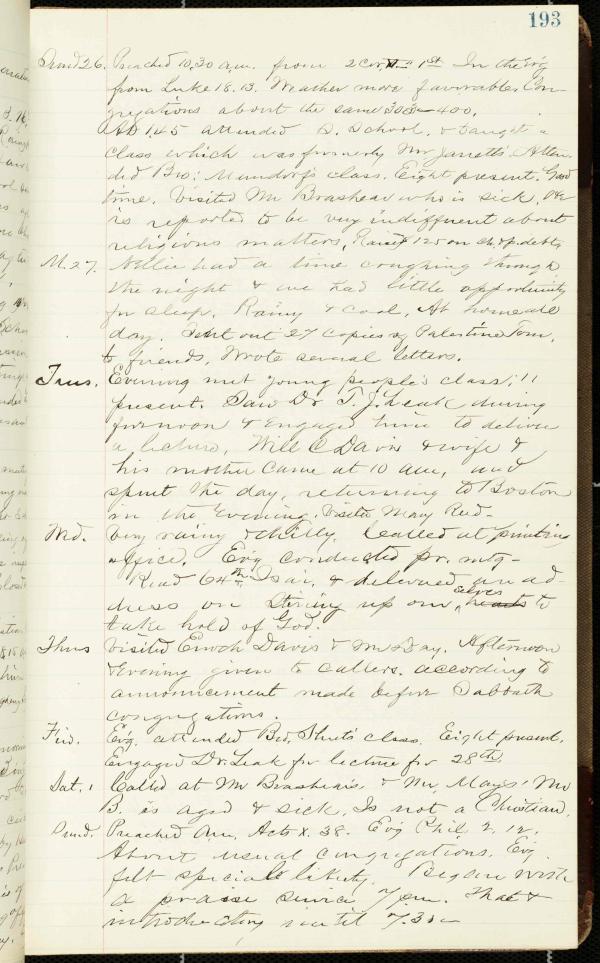 193
Sund 26. Preached 10,30 a.m. from 2 Cor. 1st In the Ev'g
from Luke 18.13. Weather more favorable. Con-
gregations about the same 300 - 400.
At 1.45 attended S. School, & taught a
class which was formerly Mr Jarrett's. Atten-
ded Bro: Mundorf's class. Eight present. Good
time. Visited Mr Brashear who is sick, He
is reported to be very indifferent about
religious matters, Raised 125 on debts
M. 27. Nellie had a time coughing through
the night & we had little opportunity
for sleep. Rainy & cool, At home all
day. Sent out 27 copies of Palestine Tom,
to friends, Wrote several letters.
Tues. Evening met young people's class; 11
present. Saw Dr T. J. Leak during
forenoon & engaged him to deliver
a lecture, Will C Davis & wife &
his mother came at 10 am, and
spent the day, returning to Boston
in the Evening. Visited Mary Reed-
Wed. Very rainy & chilly. Called at printing
office. Ev'g conducted pr. mtg-
Read 64th Isai, & delivered an ad-
dress on Stirring up our selves hearts to
take hold of God.
Thus Visited Enoch Davis & Mr Day. Afternoon
& Evening given to callers. according to
announcement made before Sabbath
congregations.
Frid. Ev'g. attended Bro. class. Eight present.
Engaged Dr Leak for lecture for 28th
Sat. 1 Called at Mr Brashear's & Mr. Mays' Mr
B. is aged & sick. Is not a Christian.
Sund. Preached Am, Acts X. 38. Ev'g Phil 2. 12.
About usual congregations. Ev'g
felt special liberty. Began with
a praise service 7 pm. That &
introductory until 7.30-